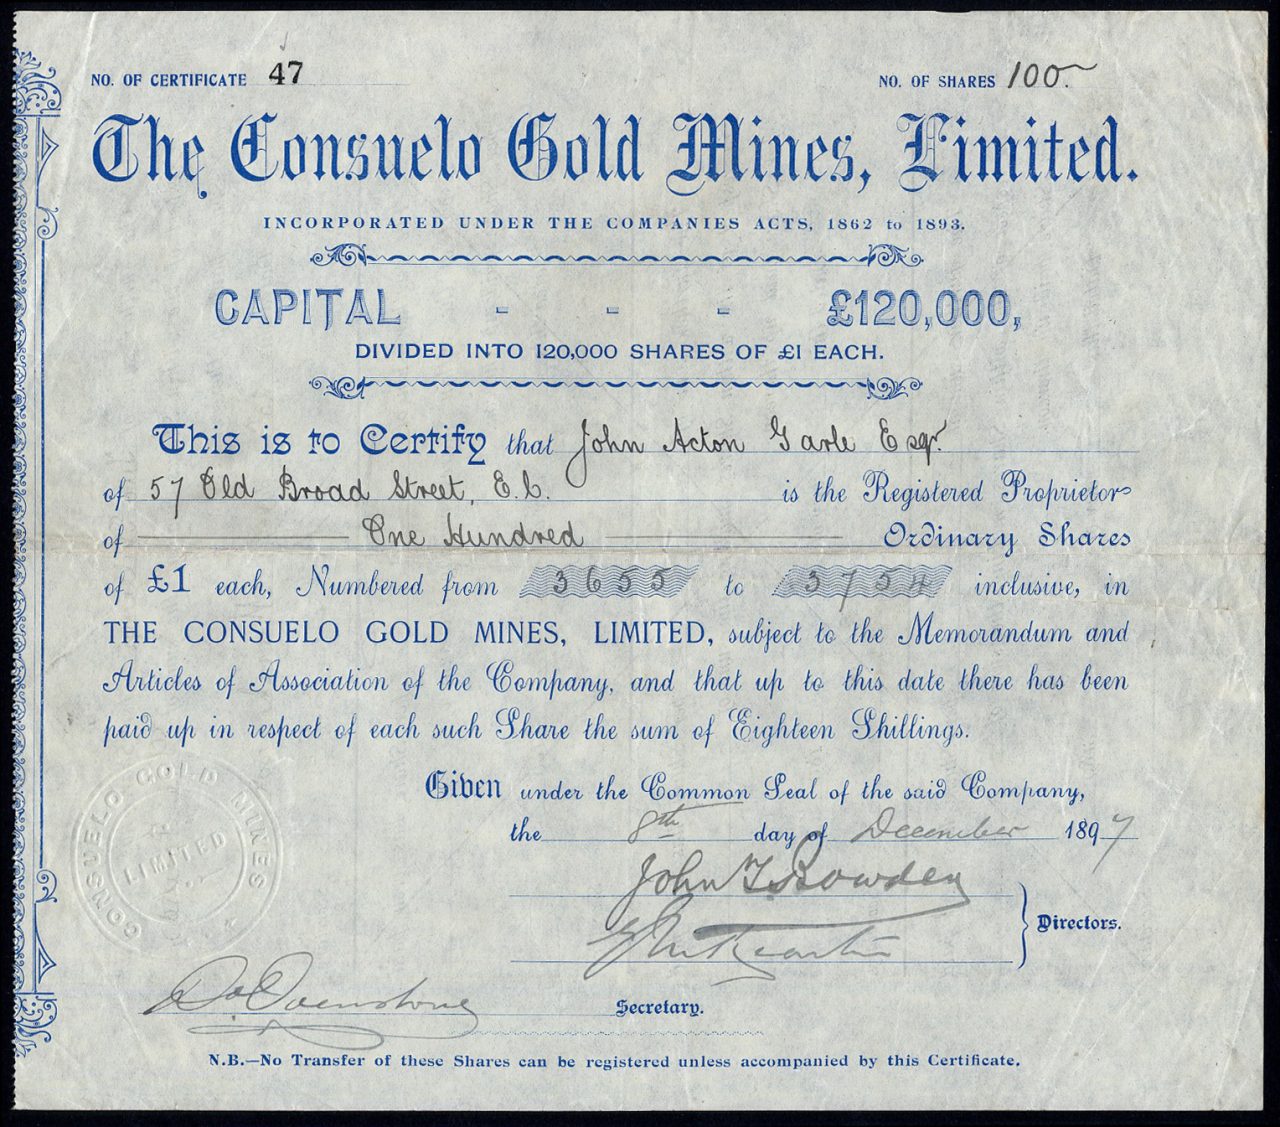 NO. OF CERTIFICATE 47
NO. OF SHARES 100
The Consuelo Gold Mines, Limited.
INCORPORATED UNDER THE COMPANIES ACTS, 1862 to 1893.
CAPITAL - - - £120,000,
DIVIDED INTO 120,000 SHARES OF £1 EACH.
This is to Certify that John Acton Garle Esqr.
of 57 Old Broad Street, E.C. is the Registered Proprietor
of One Hundred Ordinary Shares
of £1 each, Numbered from 3655 to 3754 inclusive, in
THE CONSUELO GOLD MINES, LIMITED, subject to the Memorandum and
Articles of Association of the Company, and that up to this date there has been
paid up in respect of each such Share the sum of Eighteen Shillings.
CONSUELO GOLD MINES
LIMITED
Given under the Common Seal of the said Company,
the 8th day of December 1897
John Bowden
Directors.
Secretary.
N.B.—No Transfer of these Shares can be registered unless accompanied by this Certificate.